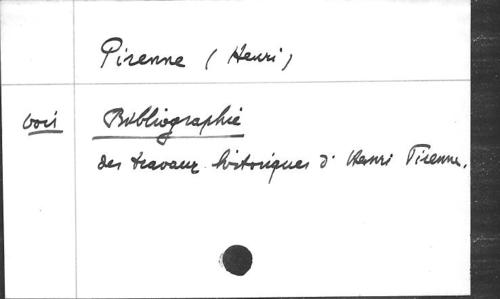 Pirenne (Henri)
voir Bibliographie
des travaux historiques d'Henri Pirenne.